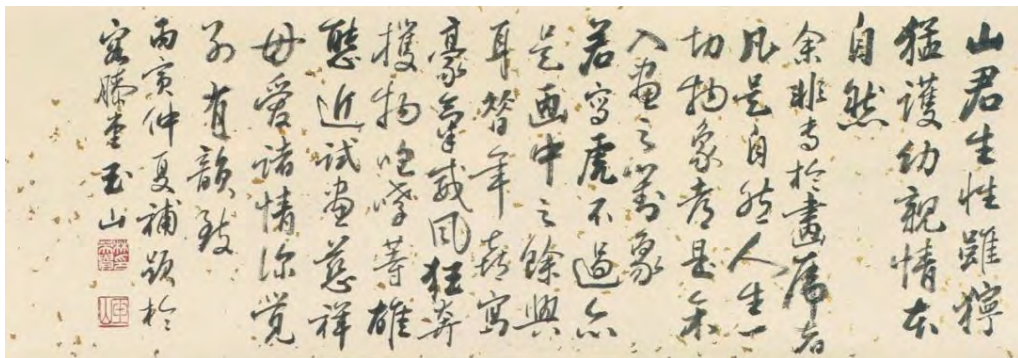 山君生性雖獰
猛護幼親情本
自然
余非專於畫虎者
凡是自然人生一
切物象都是余
入畫之對象
若寫虎不過亦
是画中之餘興
耳昔年喜寫
豪氣威風狂奔
攫物咆哮等雄
態近試畫慈祥
母愛諸情深覺
別有韻致
丙寅仲夏補題於
容膝堂玉山
玉山